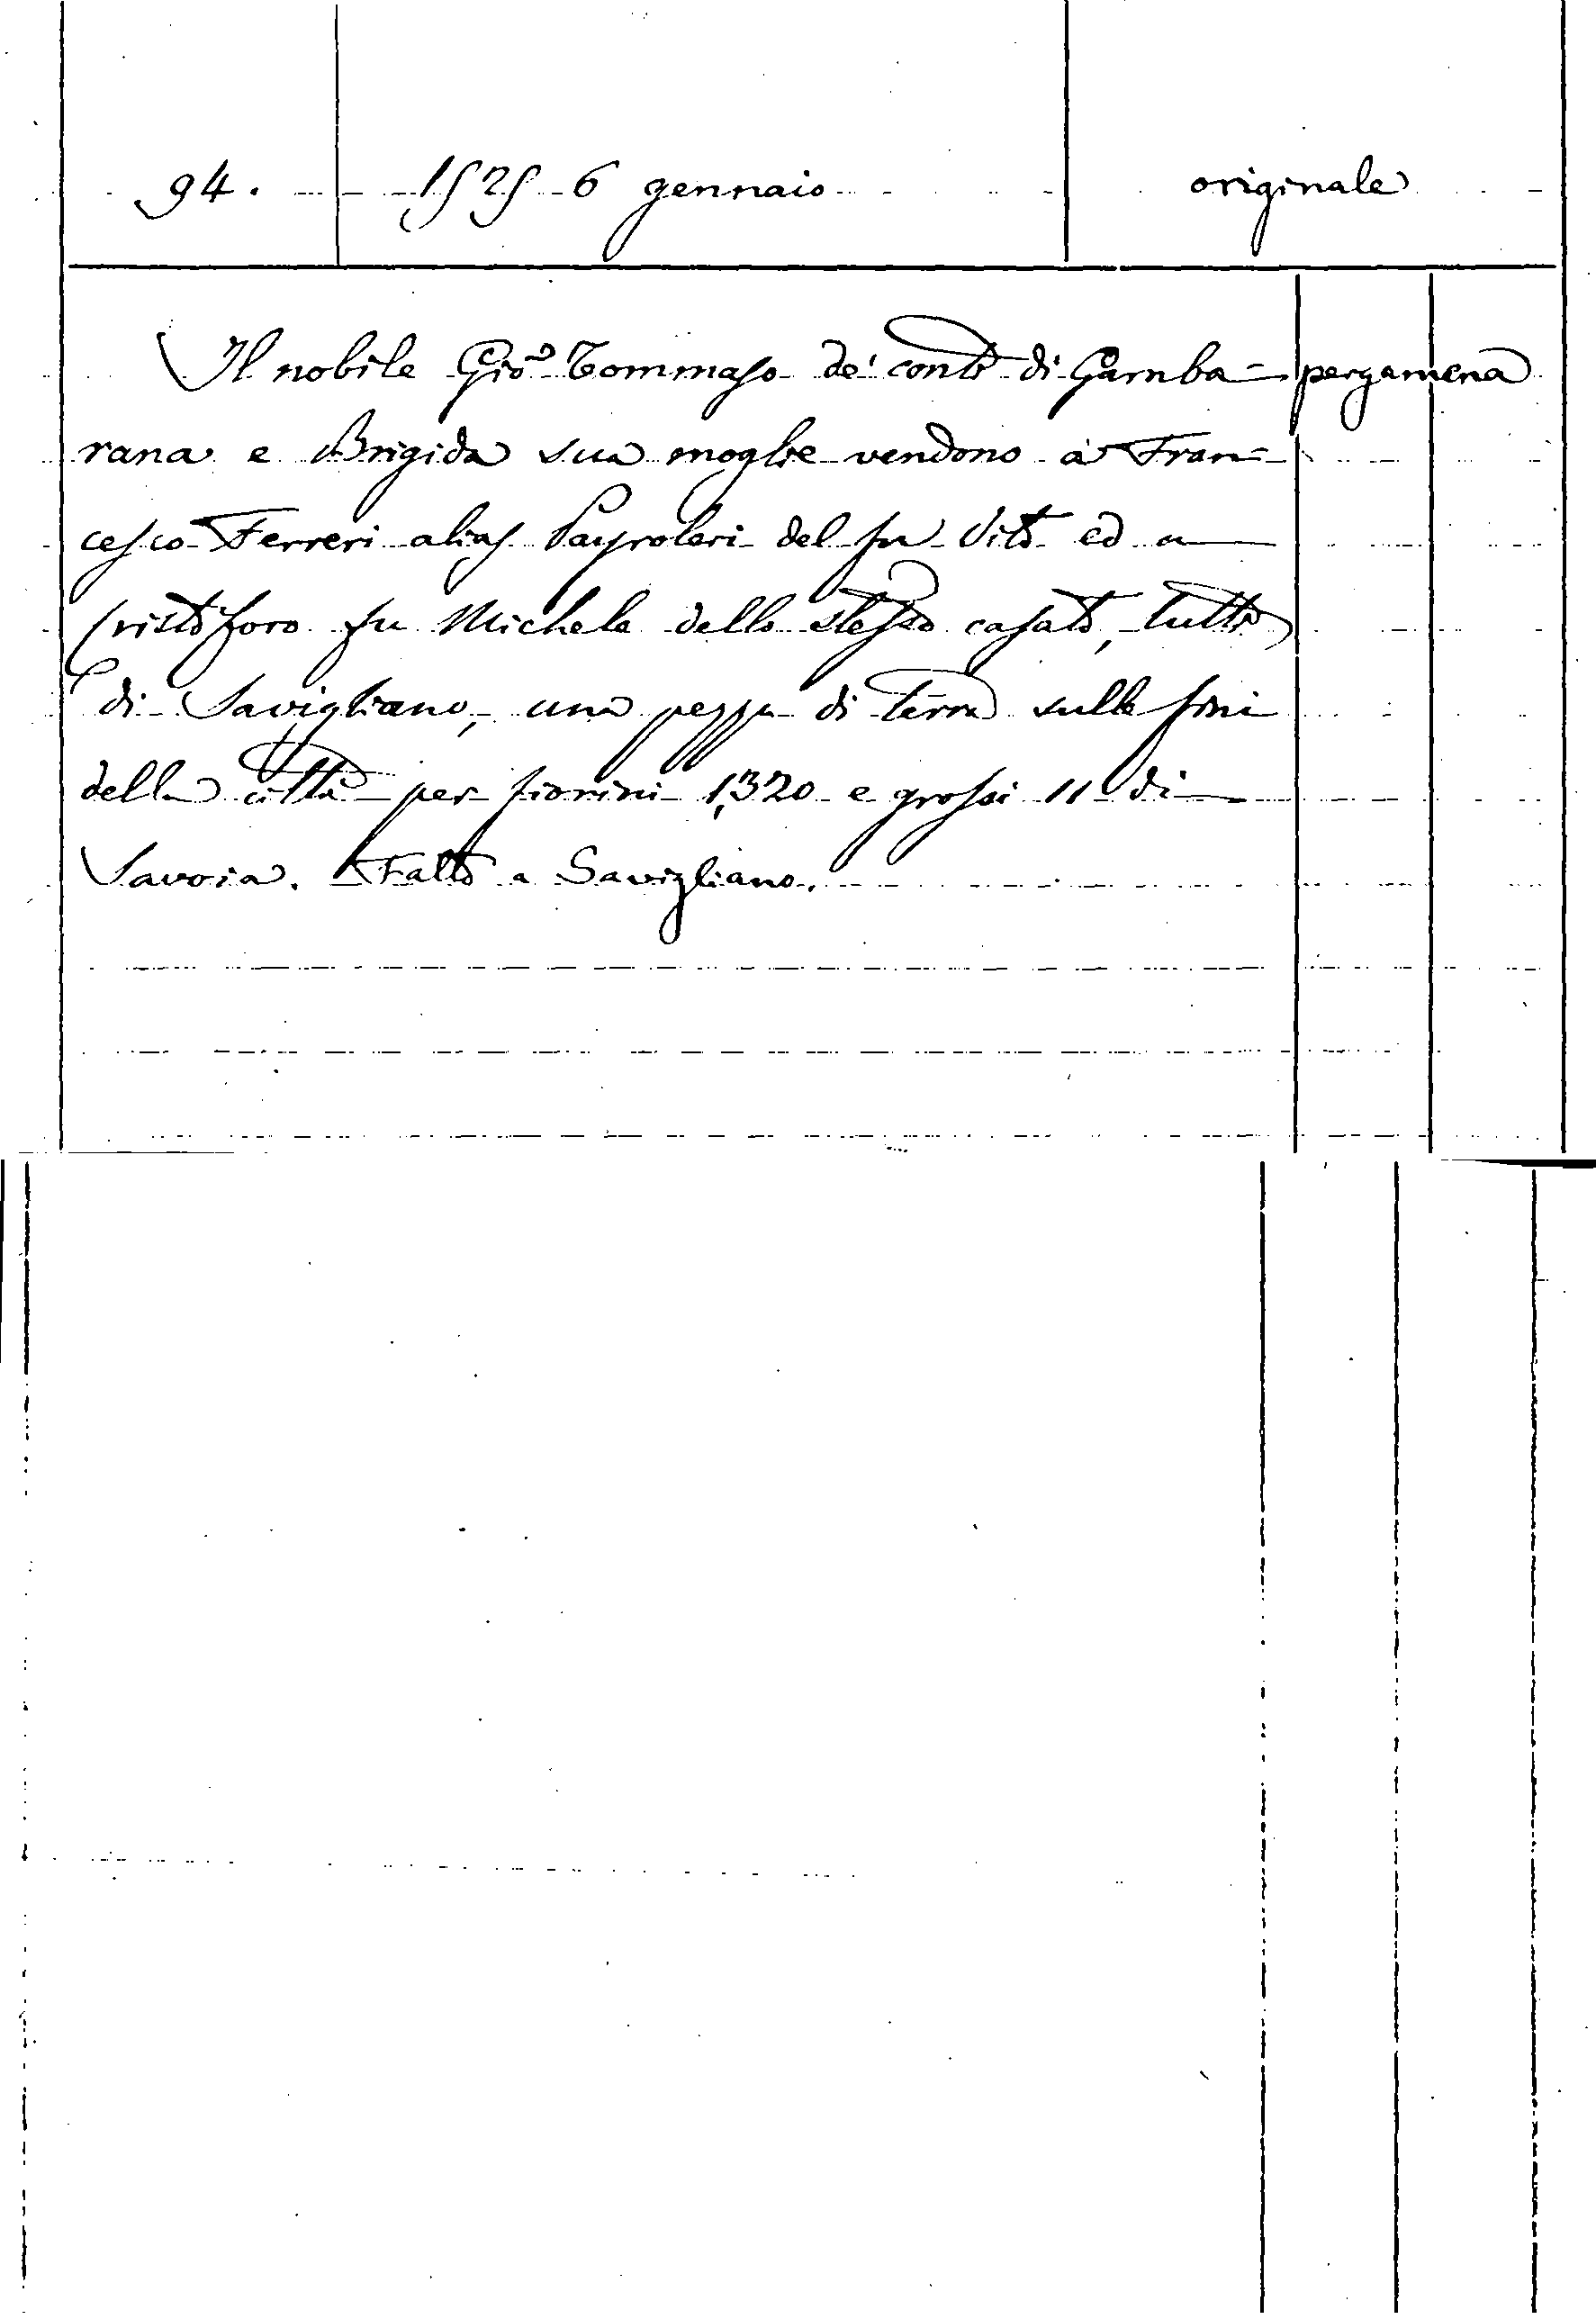 94. 1525 6 gennaio originale
Il nobile Gio. Tommaso de' conti di Gamba= pergamena
rana e Brigida sua moglie vendono a Fran=
cesco Ferreri alias Payroleri del fu Vito ed a
Cristoforo fu Michele dello stesso casato, tutti
di Savigliano, una pezza di terra sulle fini
della città per fiorini 1,320 e grossi 11 di
Savoia. Fatto a Savigliano.